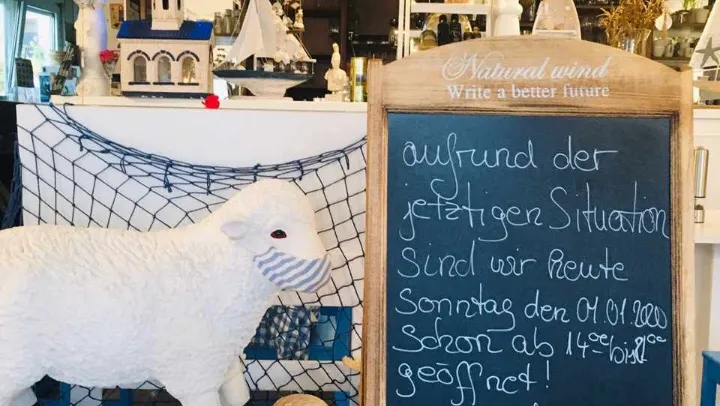 Natural wind
Write a better future
aufrund der
jetztigen Situation
sind wir heute
Sonntag den 01.01.2020
Schon ab 14 oo bis
geöffnet!